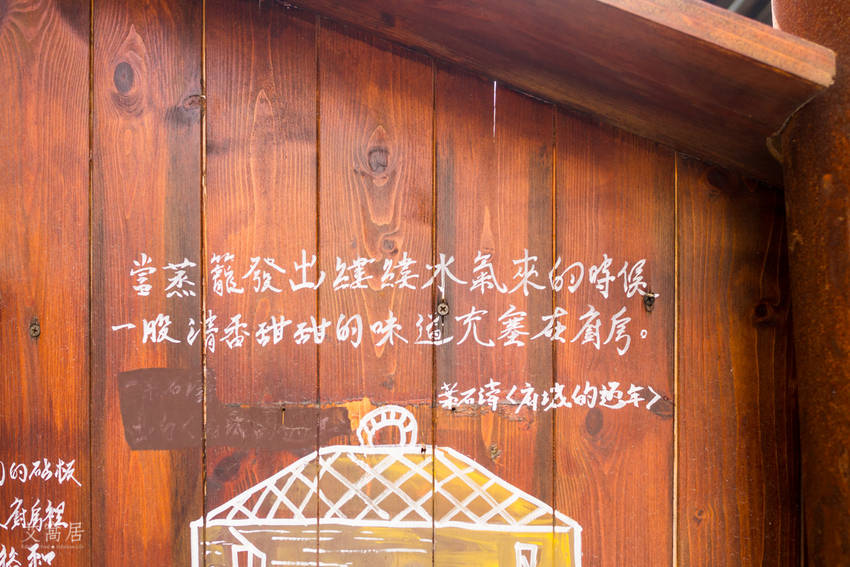 當蒸籠發出縷縷水氣來的時候
一股清香甜甜的味道充塞在廚房。
葉石濤〈府城的過年〉
的砧板
廚房裡
和
文窩居